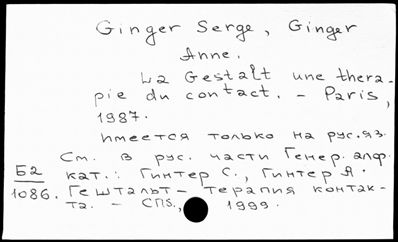 Ginger Serge, Ginger
Anne.
La Gestalt une thera-
pie du contact. – Paris,
1987.
имеется только на рус.яз.
См. в рус. части Генер. алф.
Б2 кат.: Гинтер С., Гинтер А.
1086. Гештальт – терапия контак-
та. – СПб., 1999.